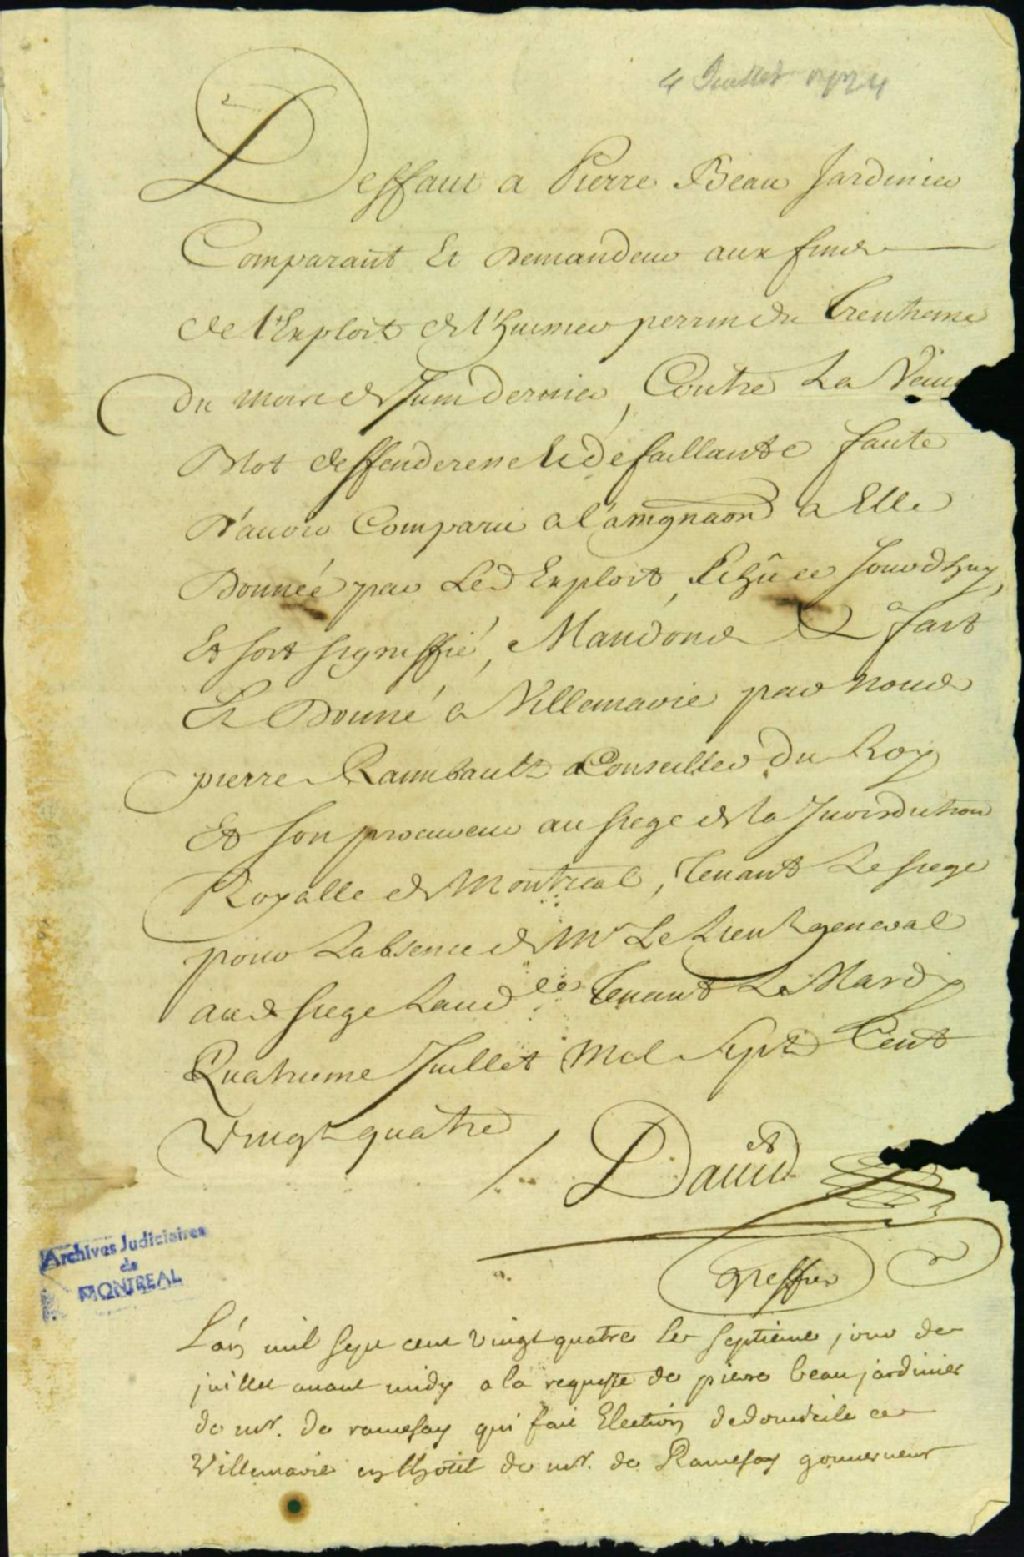 4 Juillet 1724
Deffaut a Pierre Beau Jardinier
Comparant Et Demandeur aux fins
de l'Exploit de l'huissier perrin du Trentieme
du mois de Juin dernier, Contre La Veuve
Blot deffenderesse Et defaillante faute
D'auoir Comparu a l'assignaon a Elle
Donnée par Led Exploit, Echüe ce Jourdhuy,
Et soit signiffié, Mandons & fait
Et Donné a Villemarie par Nous
pierre Raimbault Conseiller du Roy
Et son procureur au siege de la Jurisdiction
Royalle de Montreal, Tenant Le siege
pour Labsence de Mr Le Lieut general
aud siege Laud ce Tenant Le Mardy
Quatrieme Juillet Mil Sept Cent
Vingt quatre
David
Greffier
Archives Judiciaires
de
MONTREAL
L'an mil sept cent vingt quatre le septieme jour de
juillet auant midy a la requeste de pierre beau jardinier
de mr. de ramesay qui fait Election de domicile en
Villemarie en lhotel de mr. de Ramesay gouuerneur